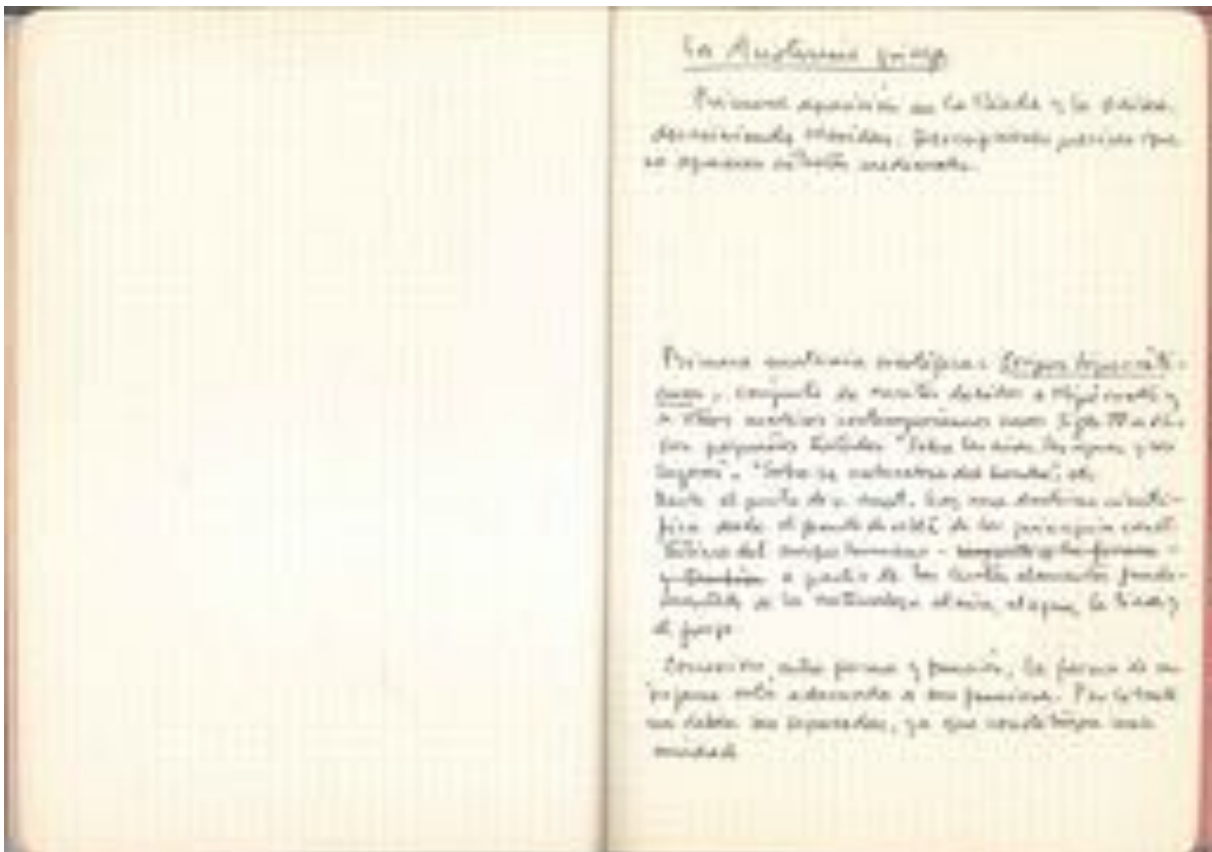 La Anatomía griega
Primera aparición en la Ilíada y la Odisea,
describiendo heridas. Descripciones precisas que
no aparecen en textos medievales.
Primera anatomía científica: Corpus hipocráti-
cum, conjunto de escritos debidos a Hipócrates y
a otros médicos contemporáneos suyos Siglo IV a.
Son pequeños tratados "Sobre los aires, las aguas y los
lugares", "Sobre la naturaleza del hombre", etc.
Desde el punto de v. anat. hay una doctrina cientí-
fica desde el punto de vista de los principios const
titutivos del cuerpo humano -
a partir de los cuatro elementos funda-
mentales de la naturaleza el aire, el agua, la tierra y
el fuego
Conexión entre forma y función, la forma de un
órgano está adecuada a sus funciones. Por lo tanto
no deben ser separadas, ya que constituyen una
unidad